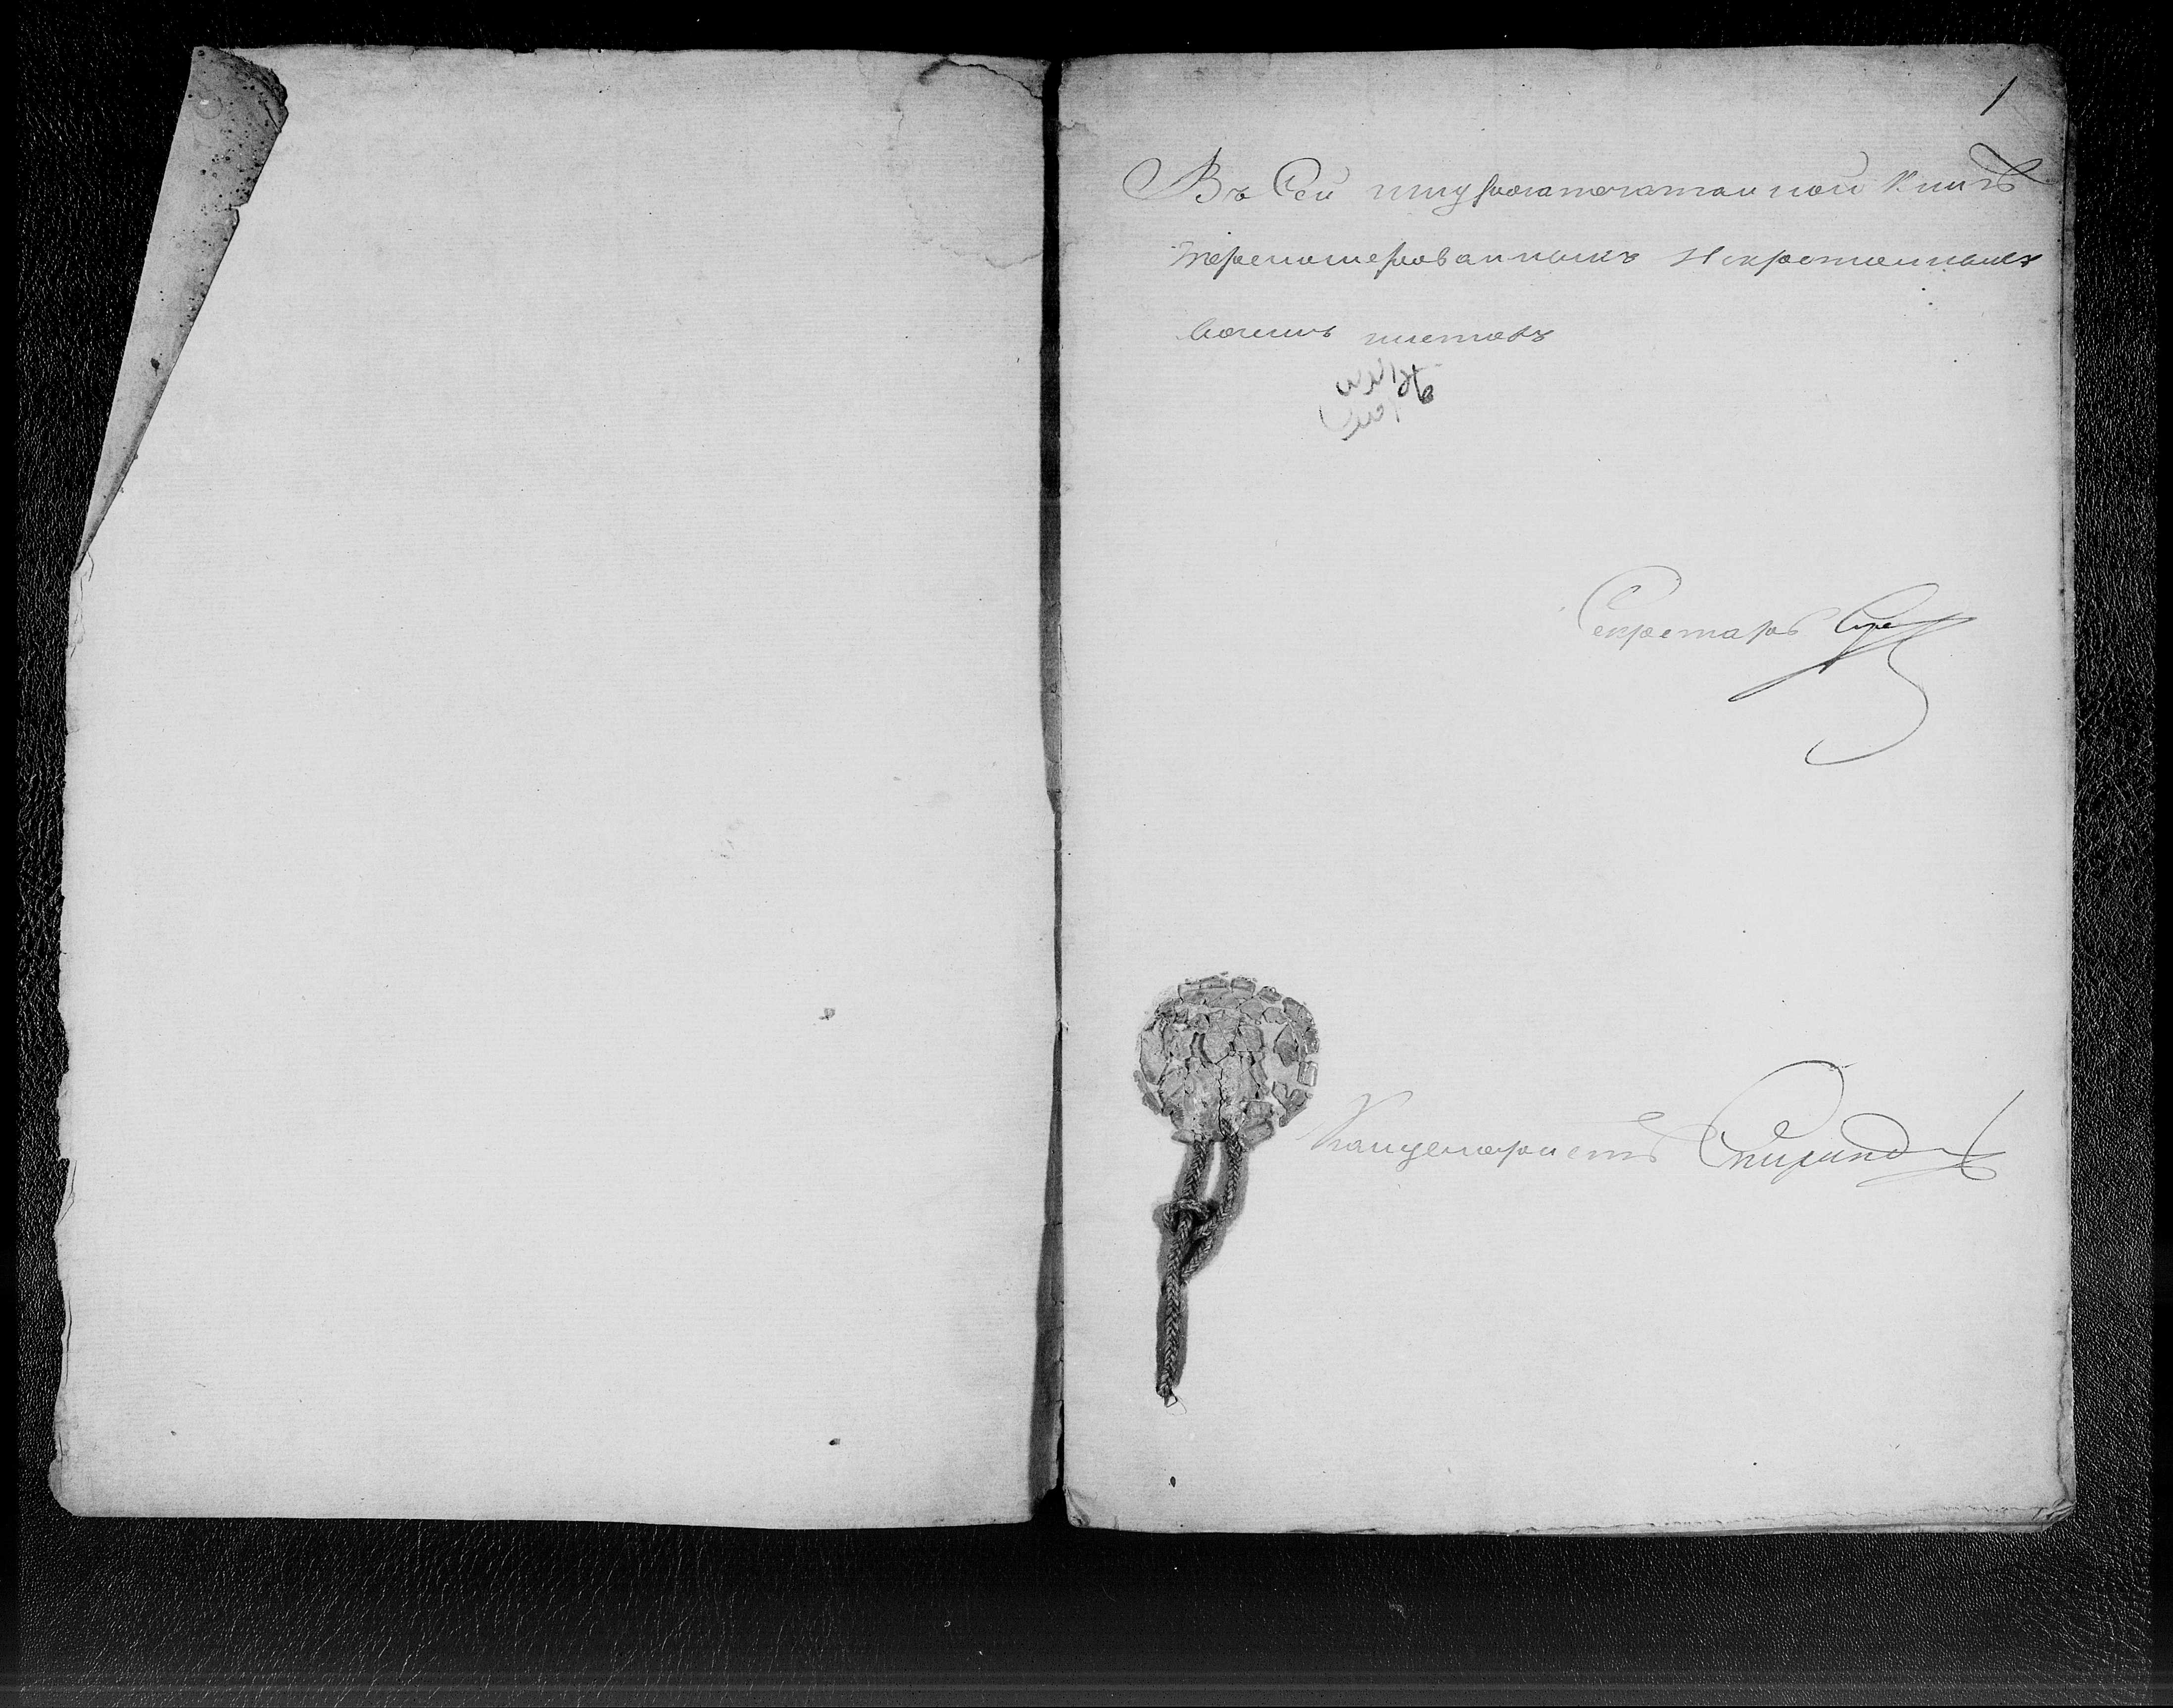 1
Въ Сей шнурозапечатанной книгѣ
переномерованныхъ и скрепленныхъ
восемь листовъ
Секретарь
Канцеляристъ Спиридо